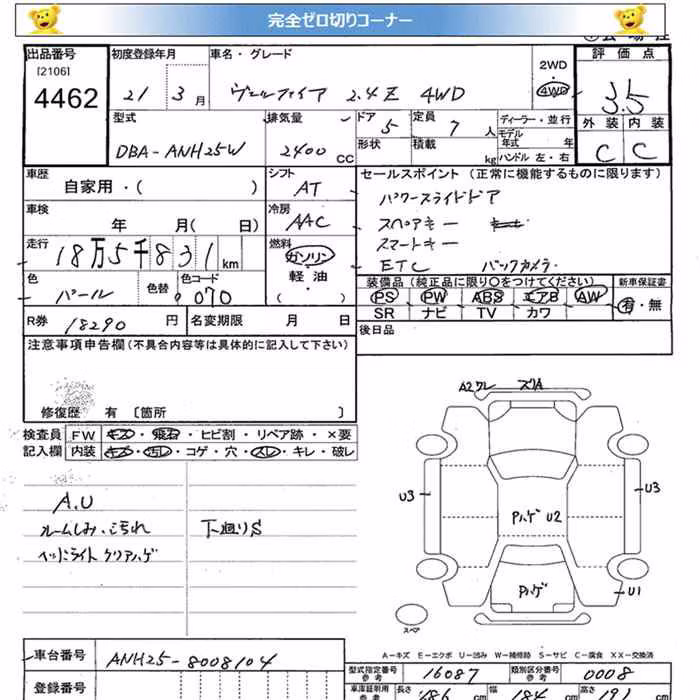 完全ゼロ切りコーナー
出品番号 [2106] 4462
初度登録年月 21 3月
車名・グレード ヴェルファイア 2.4Z 4WD
2WD 4WD
評価点 3.5
外装 内装
C C
型式 DBA-ANH25W
排気量 2400 CC
ドア 5
形状
定員 7 人
積載 kg
ディーラー・並行
モデル年式 年
ハンドル 左・右
車歴 自家用・( )
シフト AT
セールスポイント (正常に機能するものに限ります)
パワースライドドア
スペアキー
スマートキー
ETC バックカメラ
車検 年 月( 日)
冷房 AAC
走行 18万5千831km
燃料 ガソリン 軽油 ( ・ )
色 パール 色替 色コード 070
装備品 (純正品に限り〇をつけてください)
新車保証書
PS PW ABS エアB AW 有・無
SR ナビ TV カワ
R券 18290 円 名変期限 月 日
後日品
注意事項申告欄 (不具合内容等は具体的に記入して下さい)
修復歴 有 〔箇所 〕
検査員 FW キズ・飛石・ヒビ割・リペア跡・×要
記入欄 内装 キズ・汚レ・コゲ・穴・スレ・キレ・破レ
A.U
ルームしみ、汚れ
ヘッドライト クリアハゲ
下廻りS
A2ワレ ズリA
U3
U3
Pハゲ U2
Pハゲ
U1
スペア
A－キズ E－エクボ U－凹み W－補修跡 S－サビ C－腐食 XX－交換済
車台番号 ANH25-8008104
登録番号
型式指定番号 参考 16087 類別区分番号 参考 0008
車庫証明用 参考 長さ 486 cm 幅 184 cm 高さ 191 cm